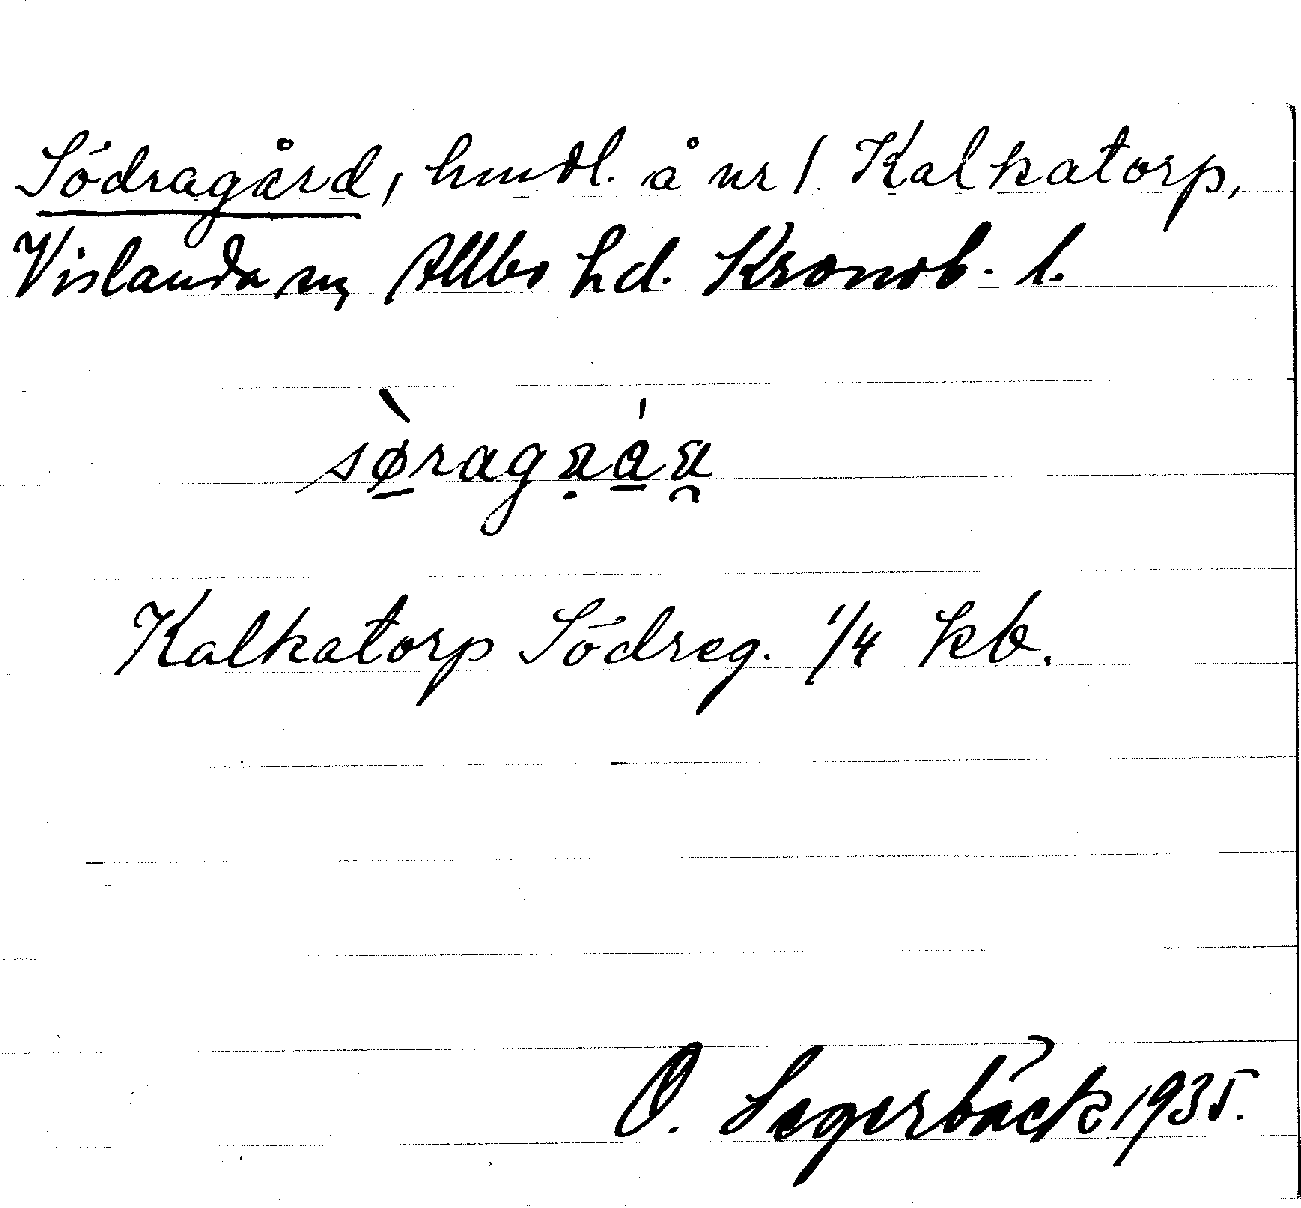 Södragård, hmdl. å nr 1 Kalkatorp,
Vislanda sn, Allbo hd. Kronob. l.
sø̀ragʀáʀ
Kalkatorp Södreg. 1/4 kb.
O. Lagerbäck 1935.